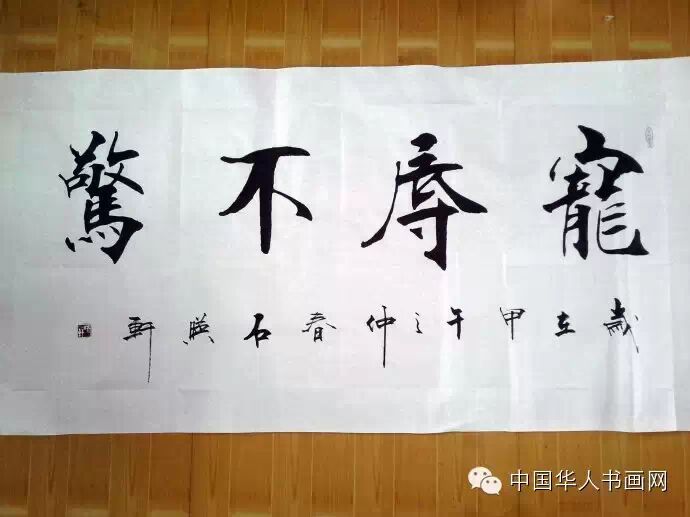 寵辱不驚
歲在甲午之仲春石瑛軒
中国华人书画网